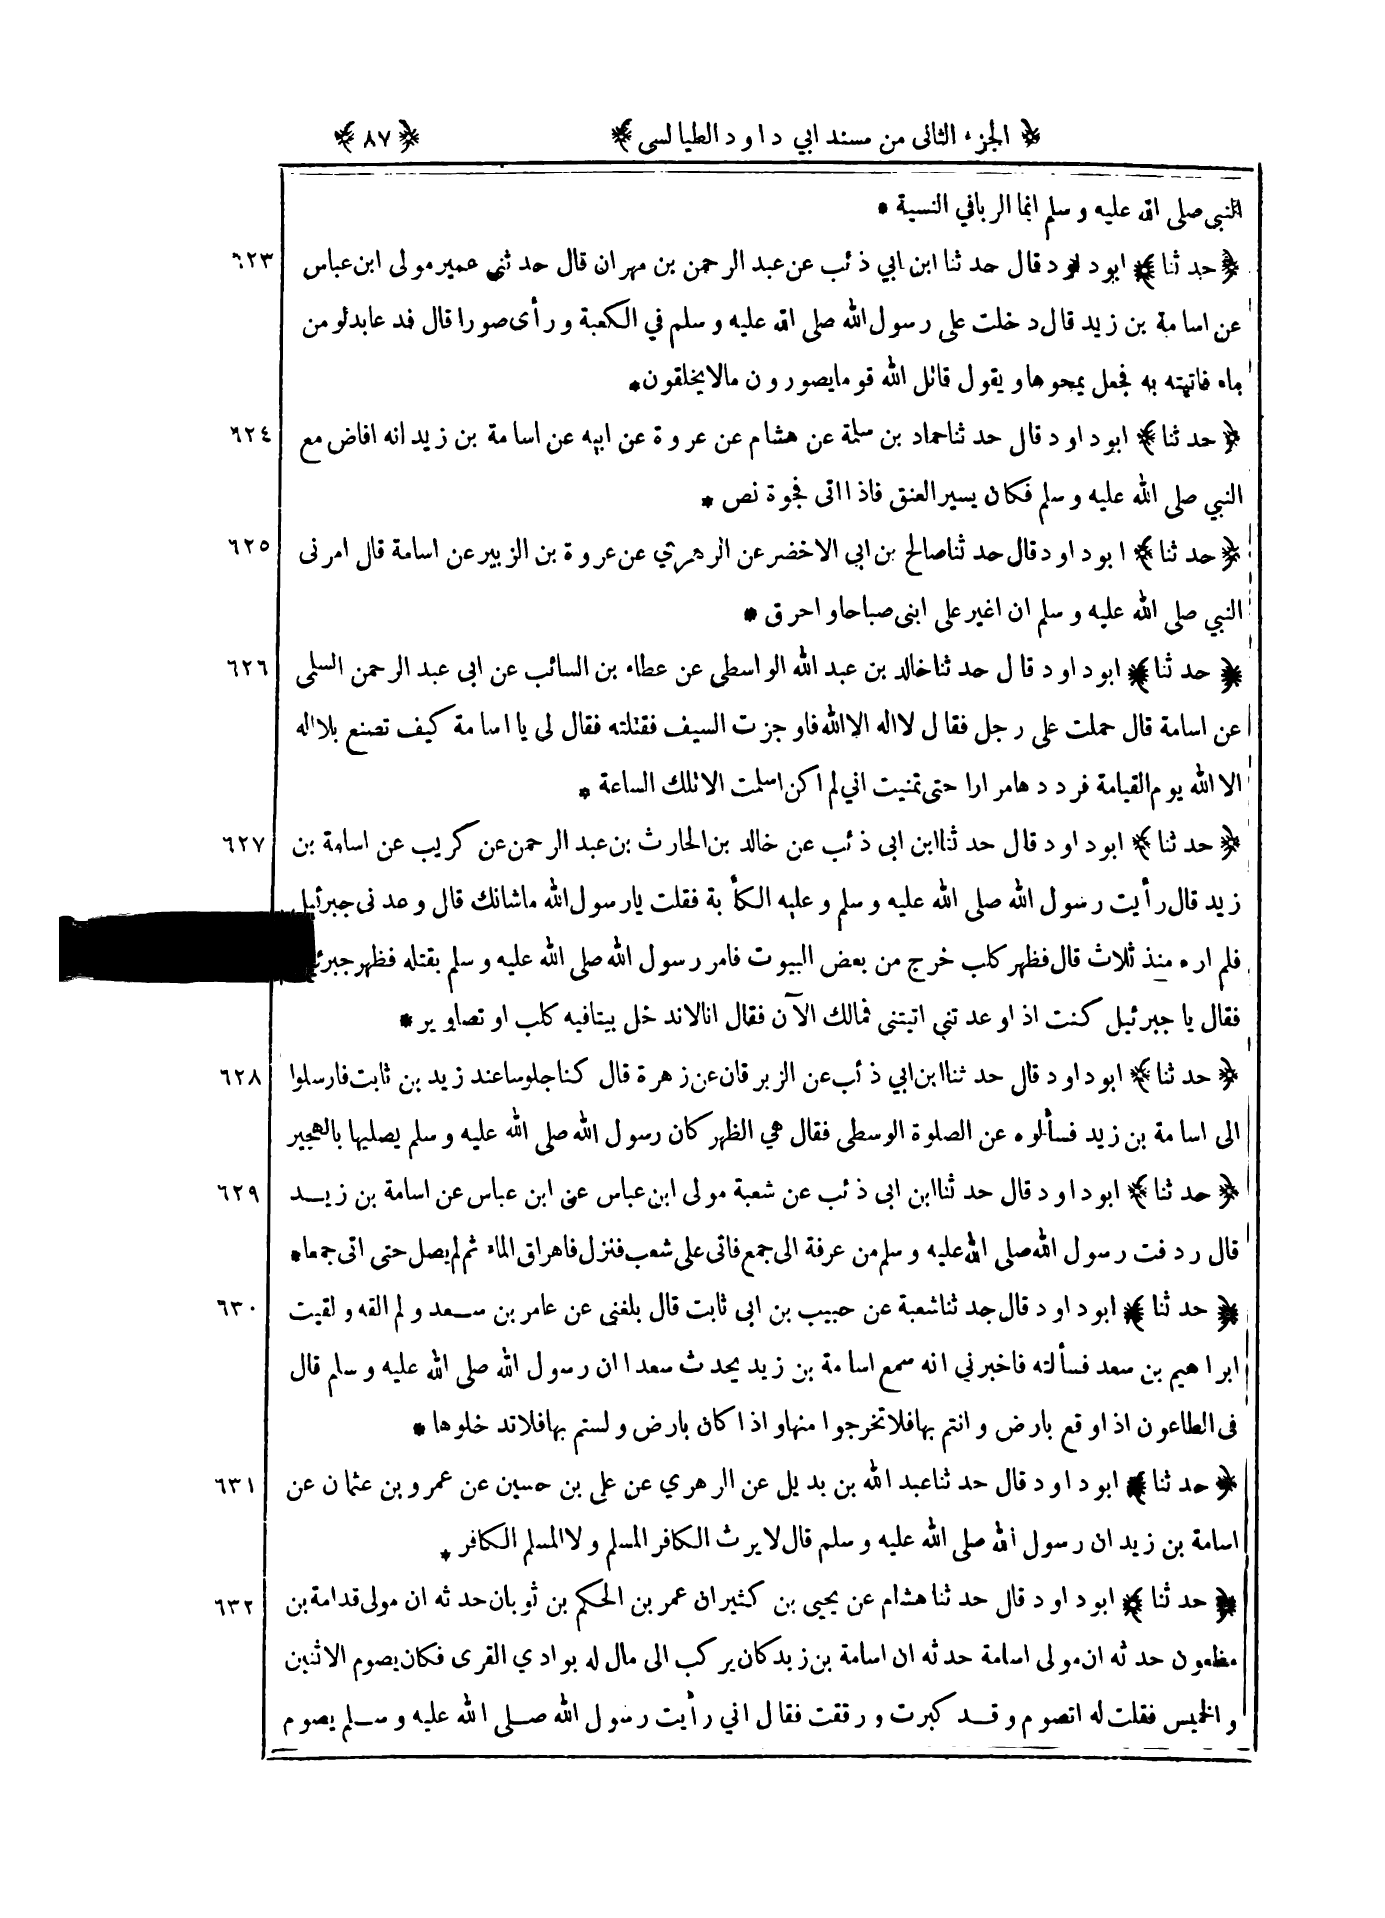 ﴿ الجزء الثانى من مسند ابي داود الطيالسى ﴾ ﴿ ٨٧ ﴾
النبى صلى الله عليه وسلم انما الربا في النسية *
٦٢٣ ﴿ حدثنا ﴾ ابوداود قال حدثنا ابن ابي ذئب عن عبد الرحمن بن مهران قال حدثنى عمير مولى ابن عباس
عن اسامة بن زيد قال دخلت على رسول الله صلى الله عليه وسلم في الكعبة ورأى صورا قال فدعا بدلو من
ماء فاتيته به فجعل يمحوها ويقول قاتل الله قوما يصورون مالا يخلقون *
٦٢٤ ﴿ حدثنا ﴾ ابوداود قال حدثنا حماد بن سلمة عن هشام عن عروة عن ابيه عن اسامة بن زيد انه افاض مع
النبي صلى الله عليه وسلم فكان يسير العنق فاذا اتى فجوة نص *
٦٢٥ ﴿ حدثنا ﴾ ابوداود قال حدثنا صالح بن ابى الاخضر عن الزهري عن عروة بن الزبير عن اسامة قال امرنى
النبي صلى الله عليه وسلم ان اغير على ابنى صباحا واحرق *
٦٢٦ ﴿ حدثنا ﴾ ابوداود قال حدثنا خالد بن عبد الله الواسطى عن عطاء بن السائب عن ابى عبد الرحمن السلمى
عن اسامة قال حملت على رجل فقال لا اله الا الله فاوجزت السيف فقتلته فقال لى يا اسامة كيف تصنع بلا اله
الا الله يوم القيامة فرددها مرارا حتى تمنيت اني لم اكن اسلمت الا تلك الساعة *
٦٢٧ ﴿ حدثنا ﴾ ابوداود قال حدثنا ابن ابى ذئب عن خالد بن الحارث بن عبد الرحمن عن كريب عن اسامة بن
زيد قال رأيت رسول الله صلى الله عليه وسلم وعليه الكأبة فقلت يارسول الله ماشانك قال وعدنى جبرئيل
فلم اره منذ ثلاث قال فظهر كلب خرج من بعض البيوت فامر رسول الله صلى الله عليه وسلم بقتله فظهر
فقال يا جبرئيل كنت اذا وعدتني اتيتنى فمالك الآن فقال انا لا ندخل بيتا فيه كلب او تصاوير *
٦٢٨ ﴿ حدثنا ﴾ ابوداود قال حدثنا ابن ابي ذئب عن الزبرقان عن زهرة قال كنا جلوسا عند زيد بن ثابت فارسلوا
الى اسامة بن زيد فسألوه عن الصلوة الوسطى فقال هي الظهر كان رسول الله صلى الله عليه وسلم يصليها بالهجير
٦٢٩ ﴿ حدثنا ﴾ ابوداود قال حدثنا ابن ابى ذئب عن شعبة مولى ابن عباس عن ابن عباس عن اسامة بن زيد
قال ردفت رسول الله صلى الله عليه وسلم من عرفة الى جمع فاتى على شعب فنزل فاهراق الماء ثم لم يصل حتى اتى جمعا *
٦٣٠ ﴿ حدثنا ﴾ ابوداود قال حدثنا شعبة عن حبيب بن ابى ثابت قال بلغنى عن عامر بن سعد ولم القه ولقيت
ابراهيم بن سعد فسألته فاخبرني انه سمع اسامة بن زيد يحدث سعدا ان رسول الله صلى الله عليه وسلم قال
فى الطاعون اذا وقع بارض وانتم بها فلا تخرجوا منها واذا كان بارض ولستم بها فلا تدخلوها *
٦٣١ ﴿ حدثنا ﴾ ابوداود قال حدثنا عبد الله بن بديل عن الزهري عن على بن حسين عن عمرو بن عثمان عن
اسامة بن زيد ان رسول الله صلى الله عليه وسلم قال لا يرث الكافر المسلم ولا المسلم الكافر *
٦٣٢ ﴿ حدثنا ﴾ ابوداود قال حدثنا هشام عن يحيى بن كثير ان عمر بن الحكم بن ثوبان حدثه ان مولى قدامة بن
مظعون حدثه ان مولى اسامة حدثه ان اسامة بن زيد كان يركب الى مال له بوادي القرى فكان يصوم الاثنين
والخميس فقلت له اتصوم وقد كبرت ورققت فقال اني رأيت رسول الله صلى الله عليه وسلم يصوم